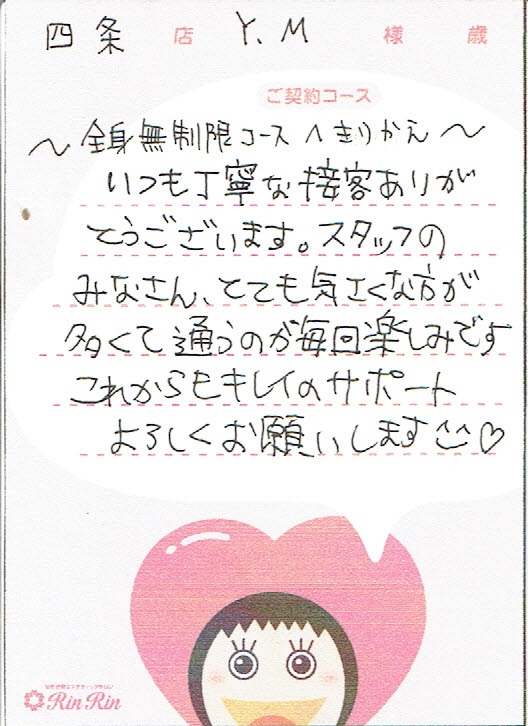 四条 店 Y.M 様 歳
ご契約コース
～全身無制限コースへきりかえ～
いつも丁寧な接客ありが
とうございます。スタッフの
みなさん、とても気さくな方が
多くて通うのが毎回楽しみです
これからもキレイのサポート
よろしくお願いします♡
RinRin